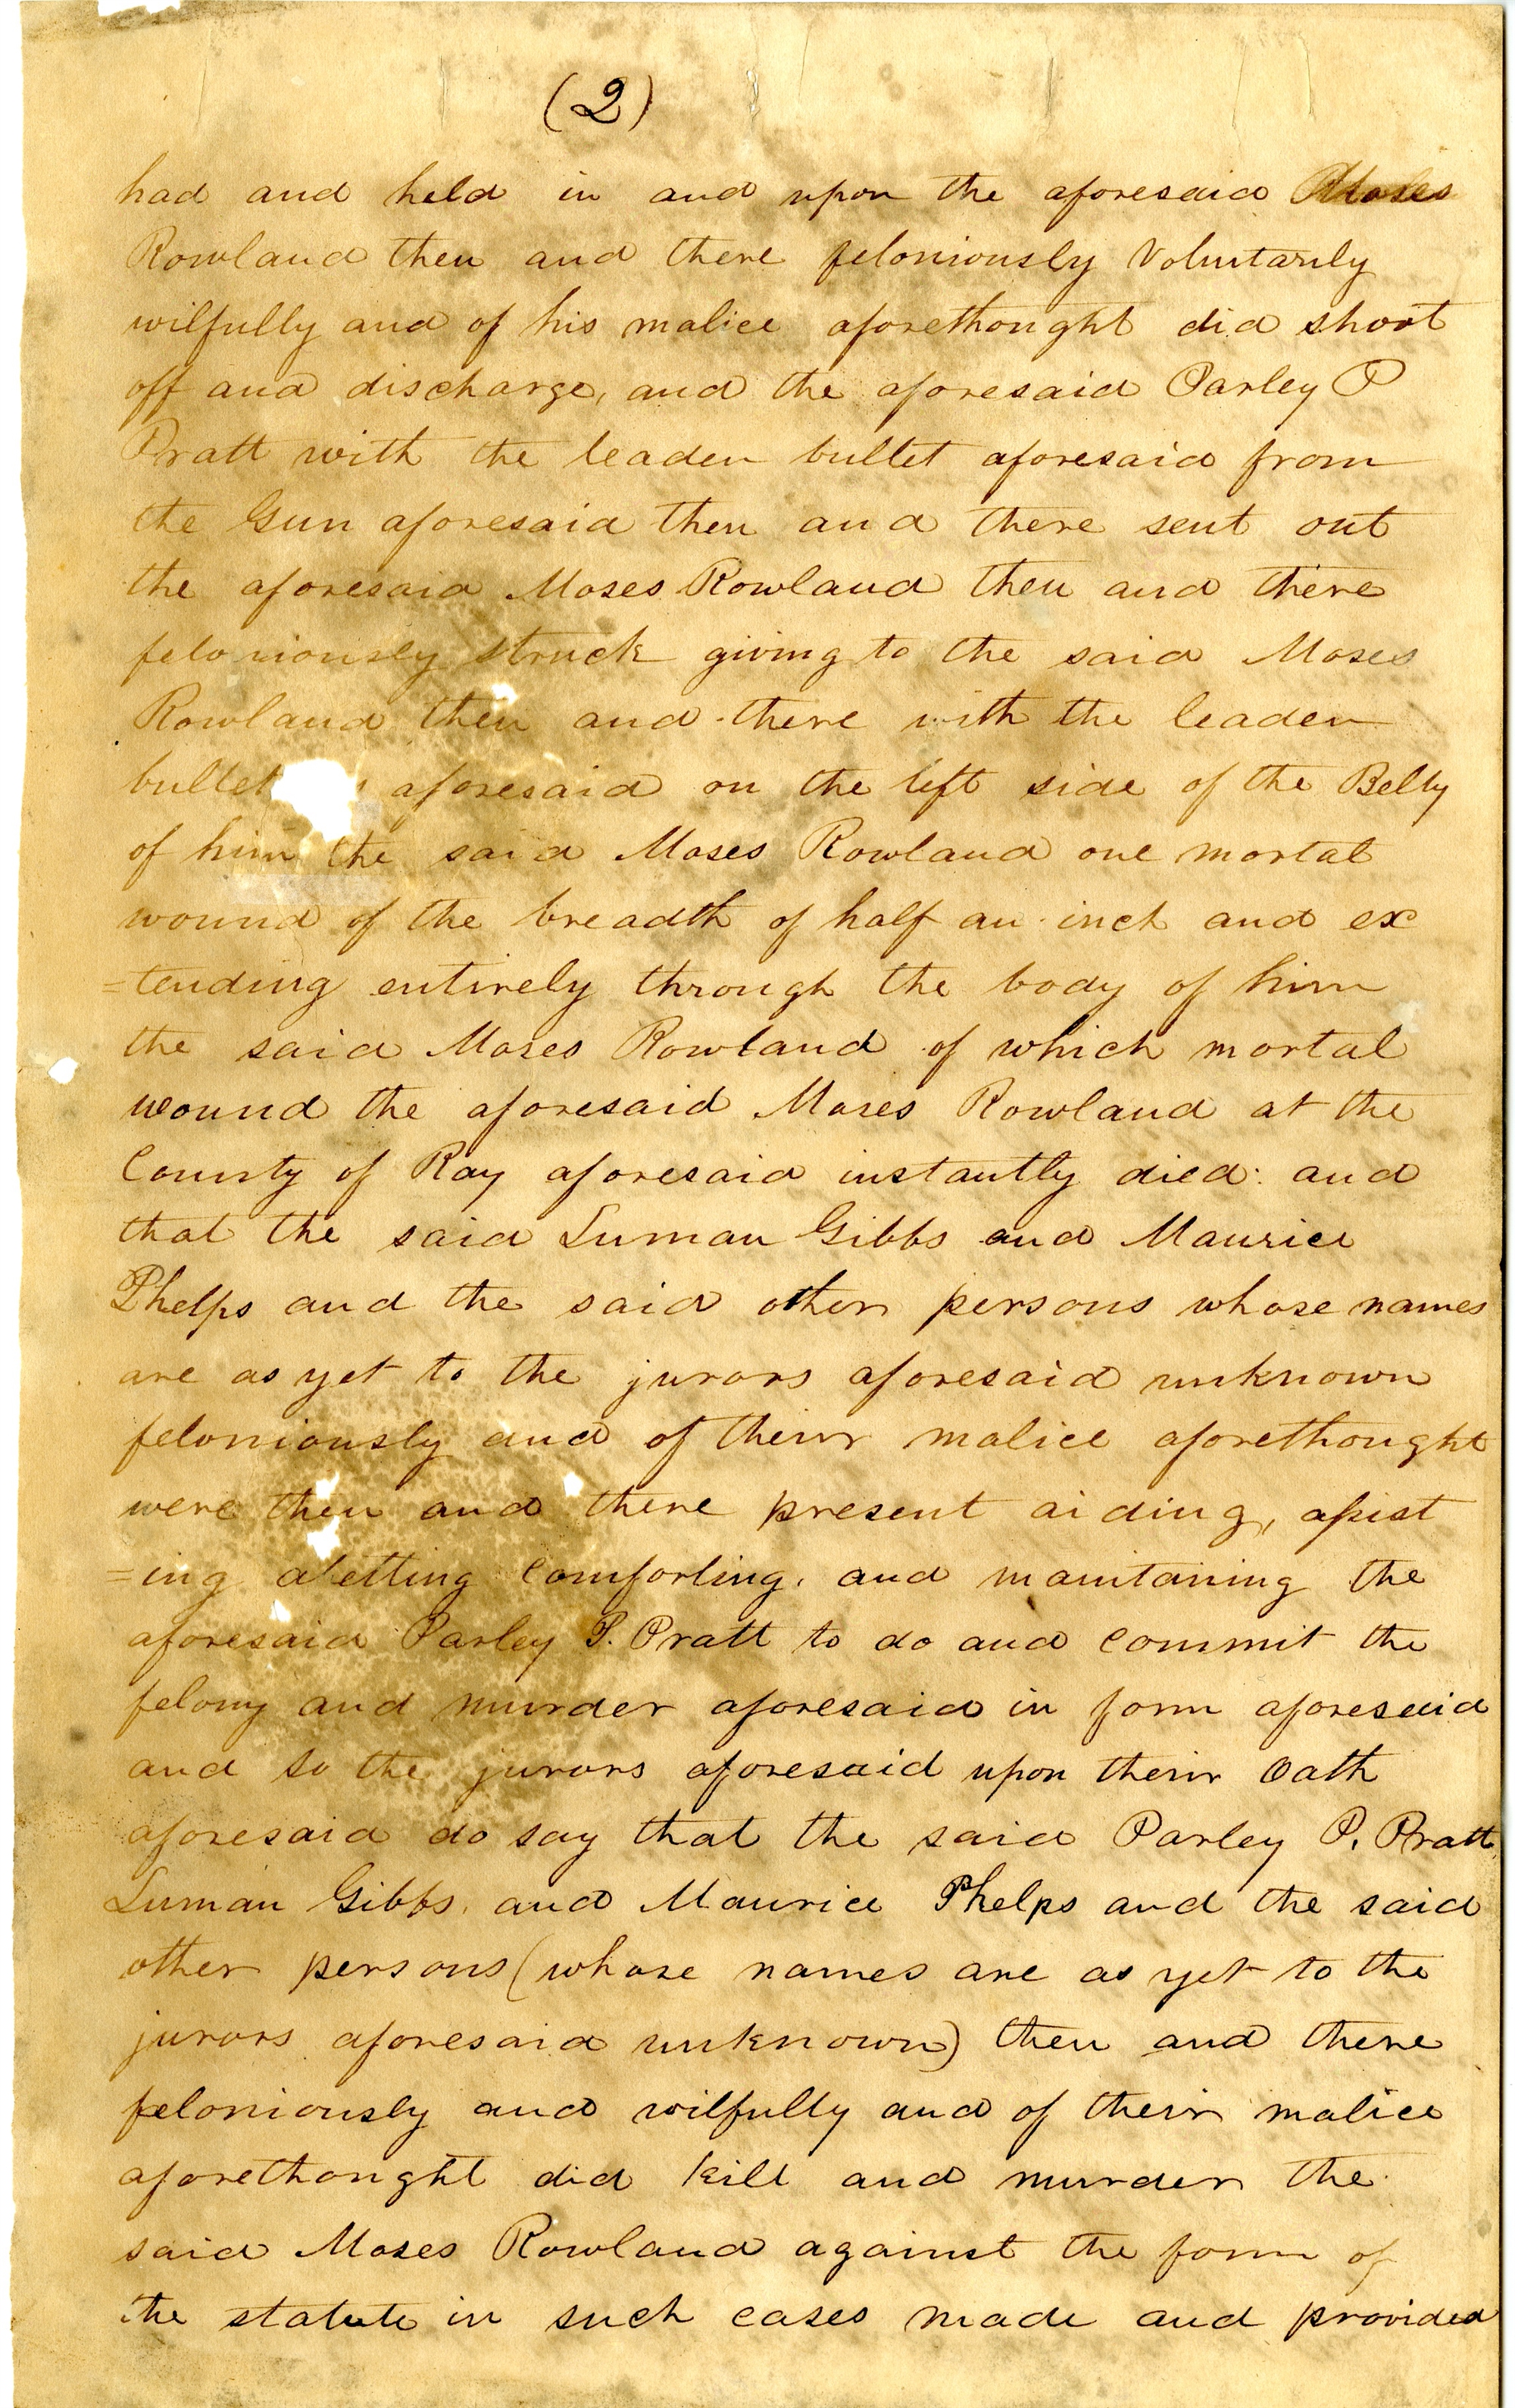 (2)
had and held in and upon the aforesaid Moses
Rowland then and there feloniously Voluntarily
wilfully and of his malice aforethought did shoot
off and discharge, and the aforesaid Parley P
Pratt with the leaden bullet aforesaid from
the Gun aforesaid then and there sent out
the aforesaid Moses Rowland then and there
feloniously struck giving to the said Moses
Rowland then and there with the leaden
bullet aforesaid on the left side of the Belly
of him the said Moses Rowland one mortal
wound of the breadth of half an inch and ex
=tending entirely through the body of him
the said Moses Rowland of which mortal
wound the aforesaid Moses Rowland at the
County of Ray aforesaid instantly died: and
that the said Luman Gibbs and Maurice
Phelps and the said other persons whose names
are as yet to the jurors aforesaid unknown
feloniously and of their malice aforethought
were then and there present aiding, assist
=ing abetting Comforting, and maintaining the
aforesaid Parley P. Pratt to do and commit the
felony and murder aforesaid in form aforesaid
and so the jurors aforesaid upon their Oath
aforesaid do say that the said Parley P. Pratt,
Luman Gibbs, and Maurice Phelps and the said
other persons (whose names are as yet to the
jurors aforesaid unknown) then and there
feloniously and wilfully and of their malice
aforethought did kill and murder the
said Moses Rowland against the form of
the statute in such cases made and provided